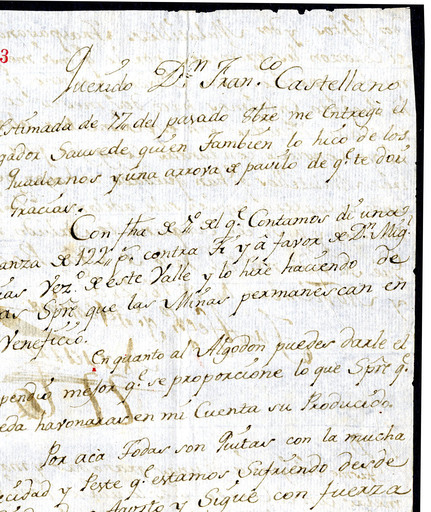 3
Querido Dn. Franco. Castellano
Estimada de 27 del pasado 8bre me Entregó el
gador Sausede, quien Tambien lo hico de los
Quadernos y una arrova de pavilo de qe. te doi
Gracias.
Con fha de de qe. Contamos di una
anza de 122 ps. contra Ti y á favor de Dn. Migl.
Vezo. de este Valle y lo hiré haciendo de
Spre que las Minas permanescan en
Veneficio.
En quanto al Algodon puedes darle el
pendio mejor qe. se proporcione lo que Spre qe.
eda havonaras en mi Cuenta su Producido.
Por acá Todas son Quitas con la mucha
ecidad y Peste qe. estamos Sufriendo desde
Agosto y Sigue con fuerza